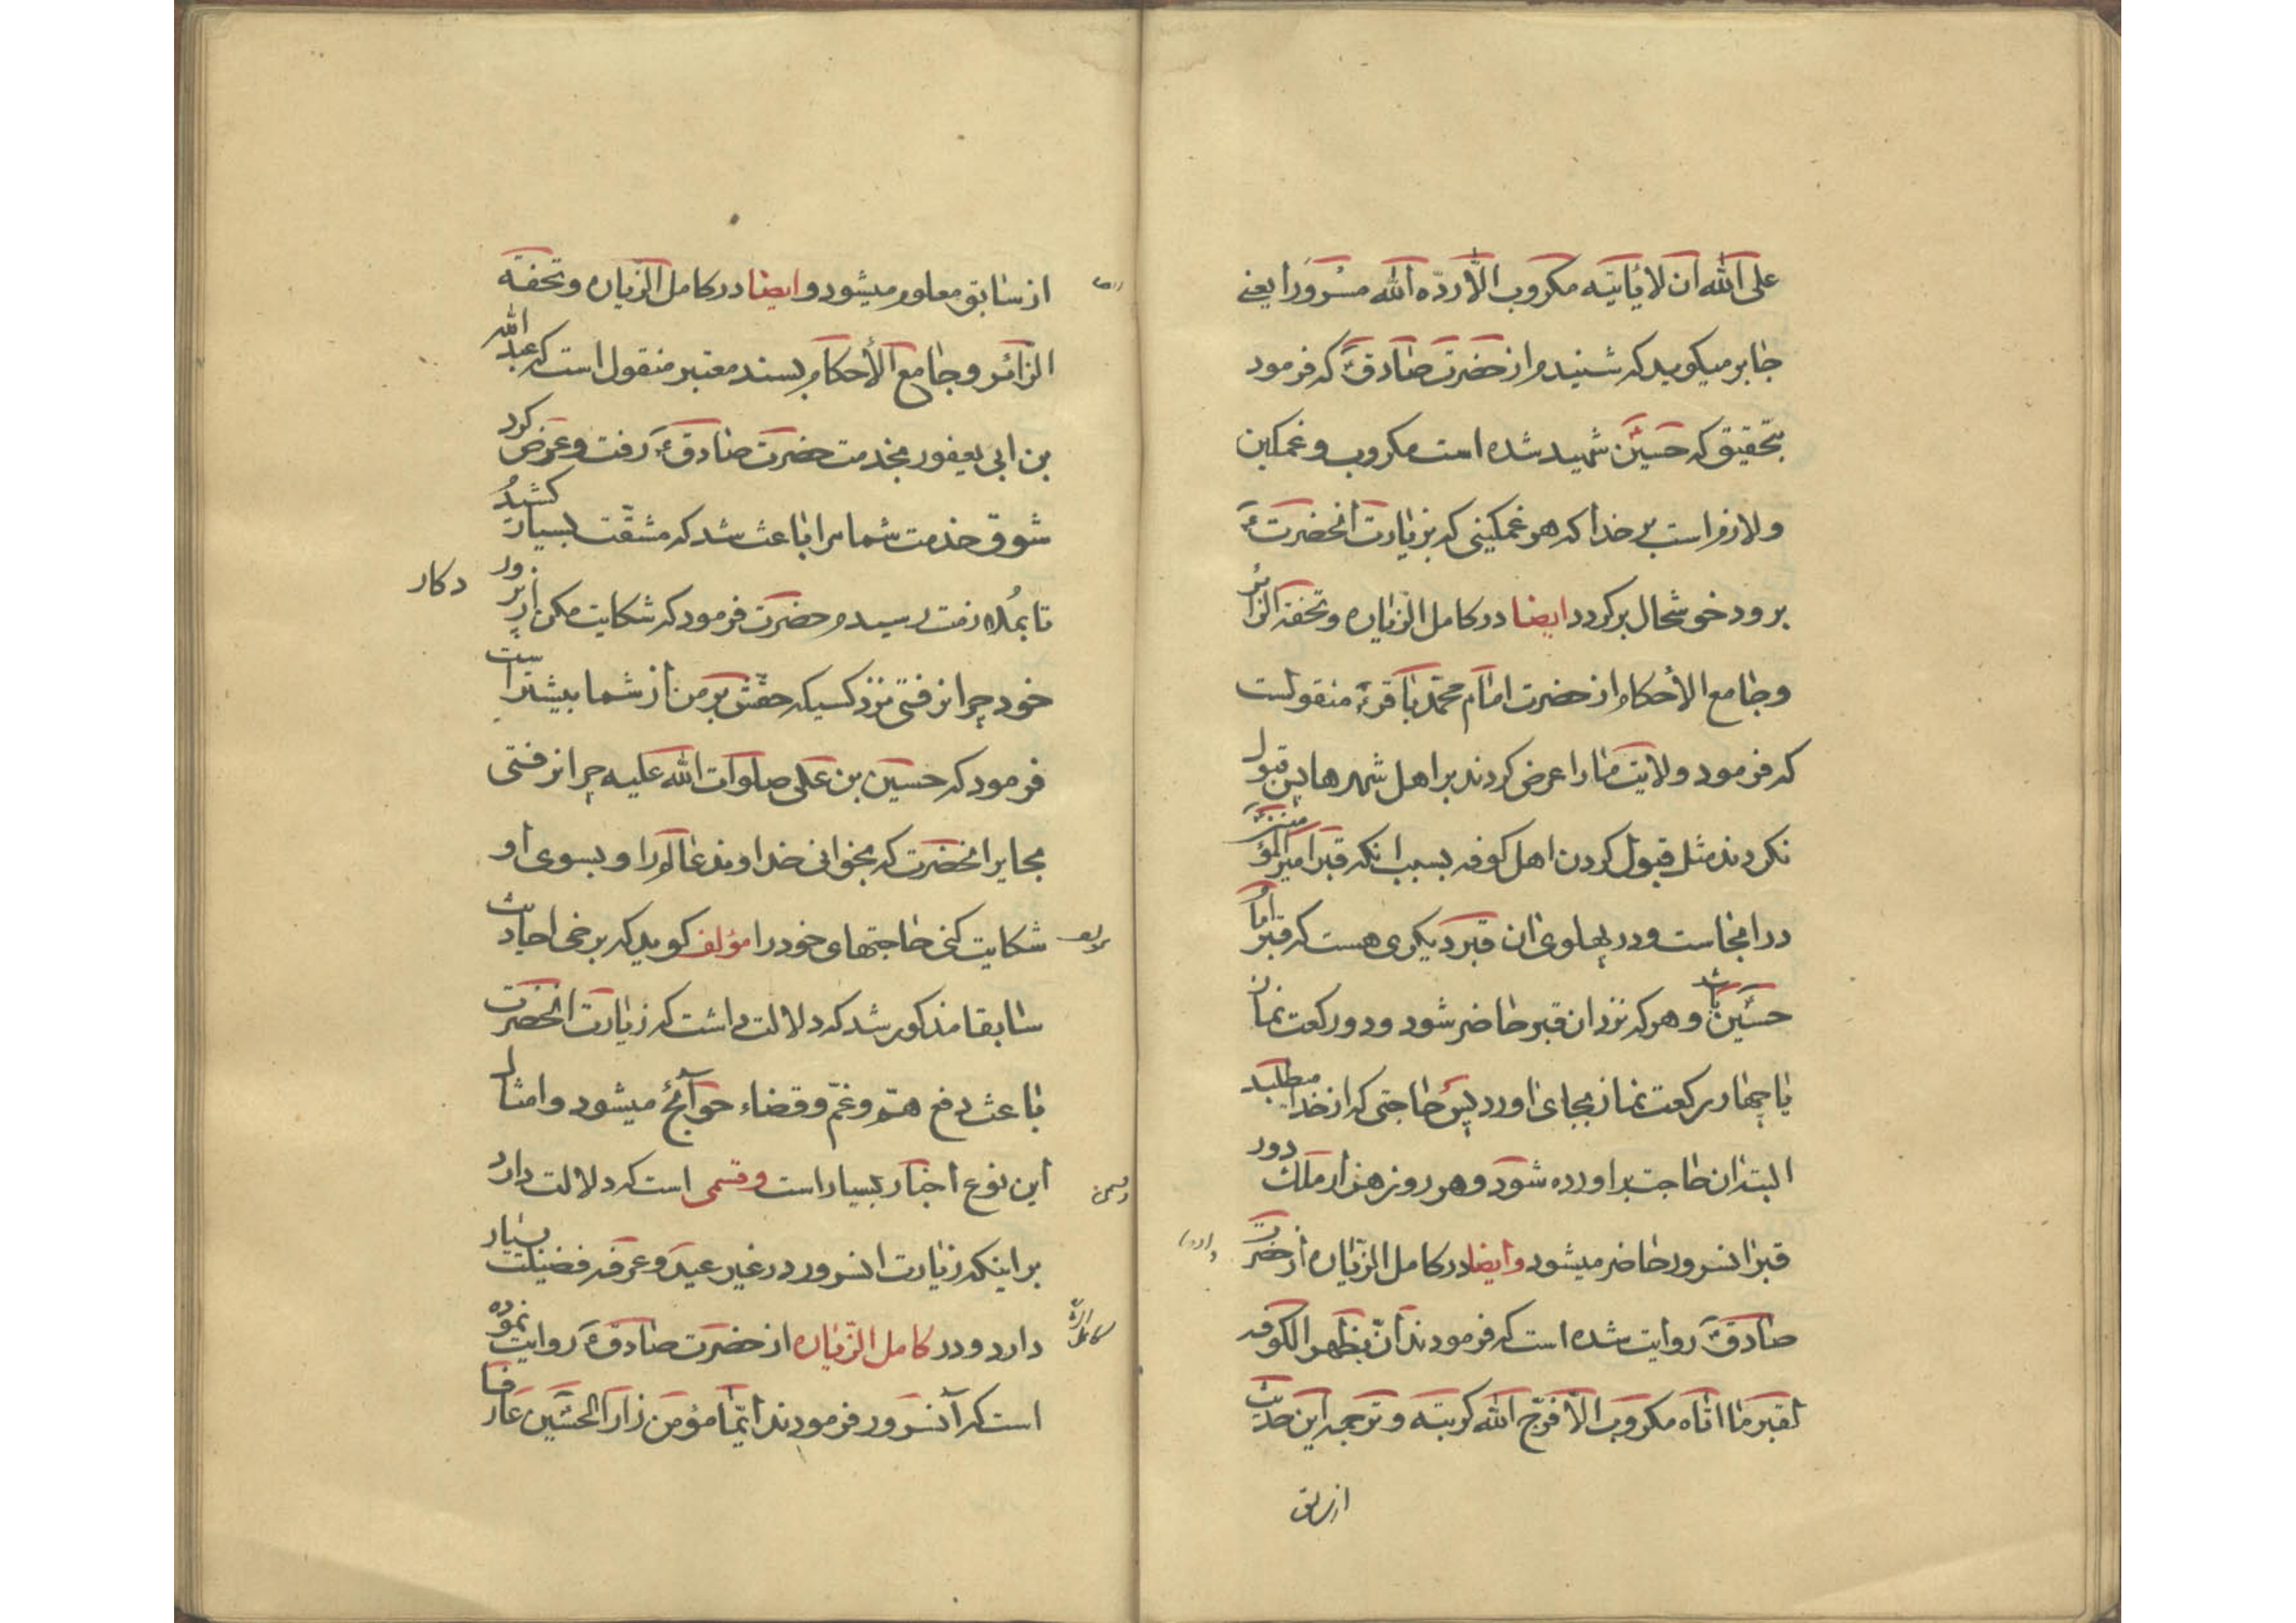 علی الله ان لا یأتیه مکروب الّا ردّه الله مسرورا یعنی
جابر میکوید که شنیدم از حضرت صادق ع که فرمود
بتحقیق که حسین شهید شده است مکروب و غمکین
و لازم است بر خدا که هر غمکینی که بزیارت انحضرت ع
برود خوشحال برکردد ایضا در کامل الزیاره و تحفة الزائر
و جامع الأحکام از حضرت امام محمّد باقر ع منقولست
که فرمود ولایت ما را عرض کردند بر اهل شهرها پس قبول
نکردند مثل قبول کردن اهل کوفه بسبب انکه قبر امیر المؤمنین
در انجاست و در پهلوی ان قبر دیکری هست که قبر امام
حسین باشد و هر که نزد ان قبر حاضر شود و دو رکعت نماز
یا چهار رکعت نماز بجای اورد پس حاجتی که از خدا مطلبد
البته ان حاجت براورده شود و هر روز هزار ملک دور
قبر انسرور حاضر میشود و ایضا در کامل الزّیاره از حضرت
صادق ع روایت شده است که فرمودند انّ بظهر الکوفه
لقبر ما اتاه مکروب الّا فرّج الله کربته و ترجمه این حدیث
از سابق
از سابق معلوم میشود و ایضا در کامل الزّیاره و تحفة
الزائر و جامع الأحکام بسند معتبر منقول است که عبد الله
بن ابی یعفور بخدمت حضرت صادق ع رفت و عرض کرد
شوق خدمت شما مرا باعث شد که مشقّت بسیار کشیدم
تا بملازمت رسیدم حضرت فرمود که شکایت مکن از پرورد
کار
خود چرا نرفتی نزد کسیکه حقّش بر من از شما بیشتر است
فرمود که حسین بن علی صلوات الله علیه چرا نرفتی
بحایر انحضرت که بخوانی خداوند عالم را و بسوی او
شکایت کنی حاجتهای خود را مؤلف کوید که برخی احادیث
سابقا مذکور شد که دلالت داشت که زیارت انحضرت
باعث دفع همّ و غمّ و قضاء حوآئج میشود و امثال
این نوع اخبار بسیار است و قسمی است که دلالت دارد
بر اینکه زیارت انسرور در غیر عید و عرفه فضیلت بسیار
دارد و در کامل الزّیاره از حضرت صادق ع روایت نموده
است که آنسرور فرمودند ایّما مؤمن زار الحسین عارفا